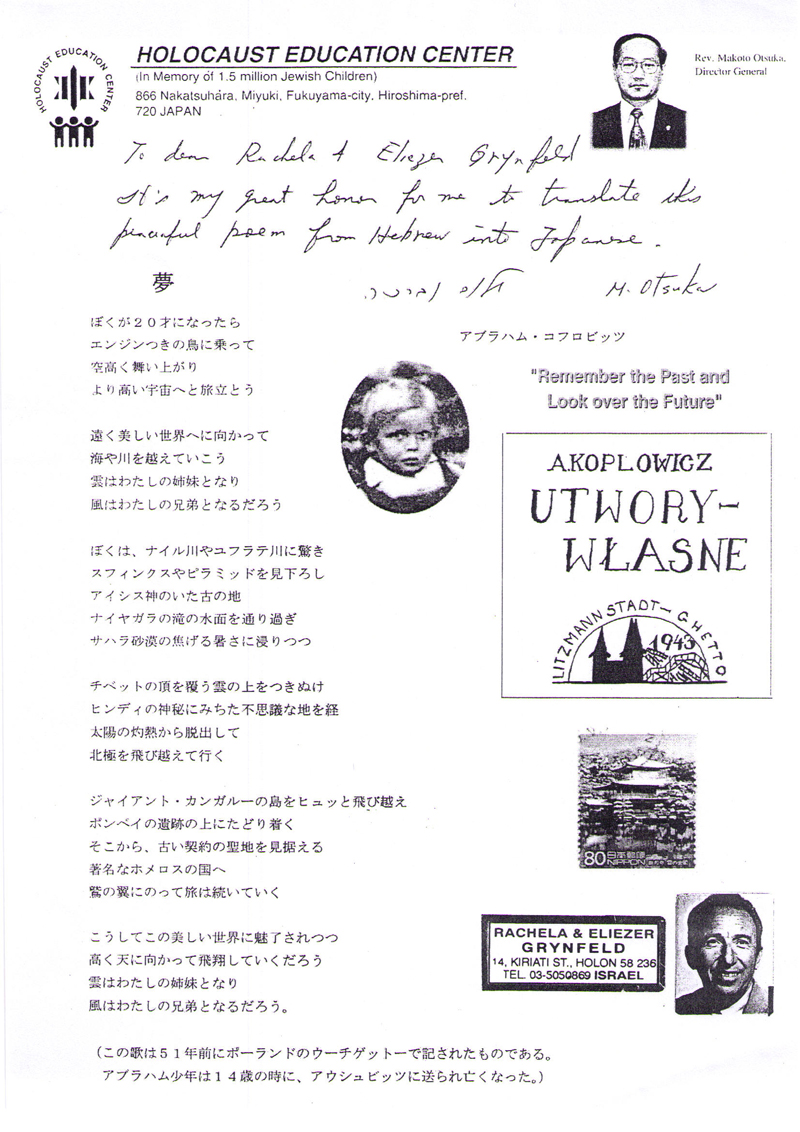 HOLOCAUST EDUCATION CENTER
HOLOCAUST EDUCATION CENTER
(In Memory of 1.5 million Jewish Children)
866 Nakatsuhara, Miyuki, Fukuyama-city, Hiroshima-pref.
720 JAPAN
Rev. Makoto Otsuka,
Director General
To dear Rachela & Eliezer Grynfeld
It's my great honor for me to translate this
peaceful poem from Hebrew into Japanese.
M. Otsuka
夢
アブラハム・コフロビッツ
ぼくが20才になったら
エンジンつきの鳥に乗って
空高く舞い上がり
より高い宇宙へと旅立とう
遠く美しい世界へに向かって
海や川を越えていこう
雲はわたしの姉妹となり
風はわたしの兄弟となるだろう
ぼくは、ナイル川やユフラテ川に驚き
スフィンクスやピラミッドを見下ろし
アイシス神のいた古の地
ナイヤガラの滝の水面を通り過ぎ
サハラ砂漠の焦げる暑さに浸りつつ
チベットの頂を覆う雲の上をつきぬけ
ヒンディの神秘にみちた不思議な地を経
太陽の灼熱から脱出して
北極を飛び越えて行く
ジャイアント・カンガルーの島をヒュッと飛び越え
ポンペイの遺跡の上にたどり着く
そこから、古い契約の聖地を見据える
著名なホメロスの国へ
鷲の翼にのって旅は続いていく
こうしてこの美しい世界に魅了されつつ
高く天に向かって飛翔していくだろう
雲はわたしの姉妹となり
風はわたしの兄弟となるだろう。
(この歌は51年前にポーランドのウーチゲットーで記されたものである。
アブラハム少年は14歳の時に、アウシュビッツに送られ亡くなった。)
"Remember the Past and
Look over the Future"
A.KOPLOWICZ
UTWORY-
WŁASNE
LITZMANNSTADT-GHETTO
1943
80 日本郵便
NIPPON
RACHELA & ELIEZER
GRYNFELD
14, KIRIATI ST., HOLON 58 236
TEL. 03-5050869 ISRAEL